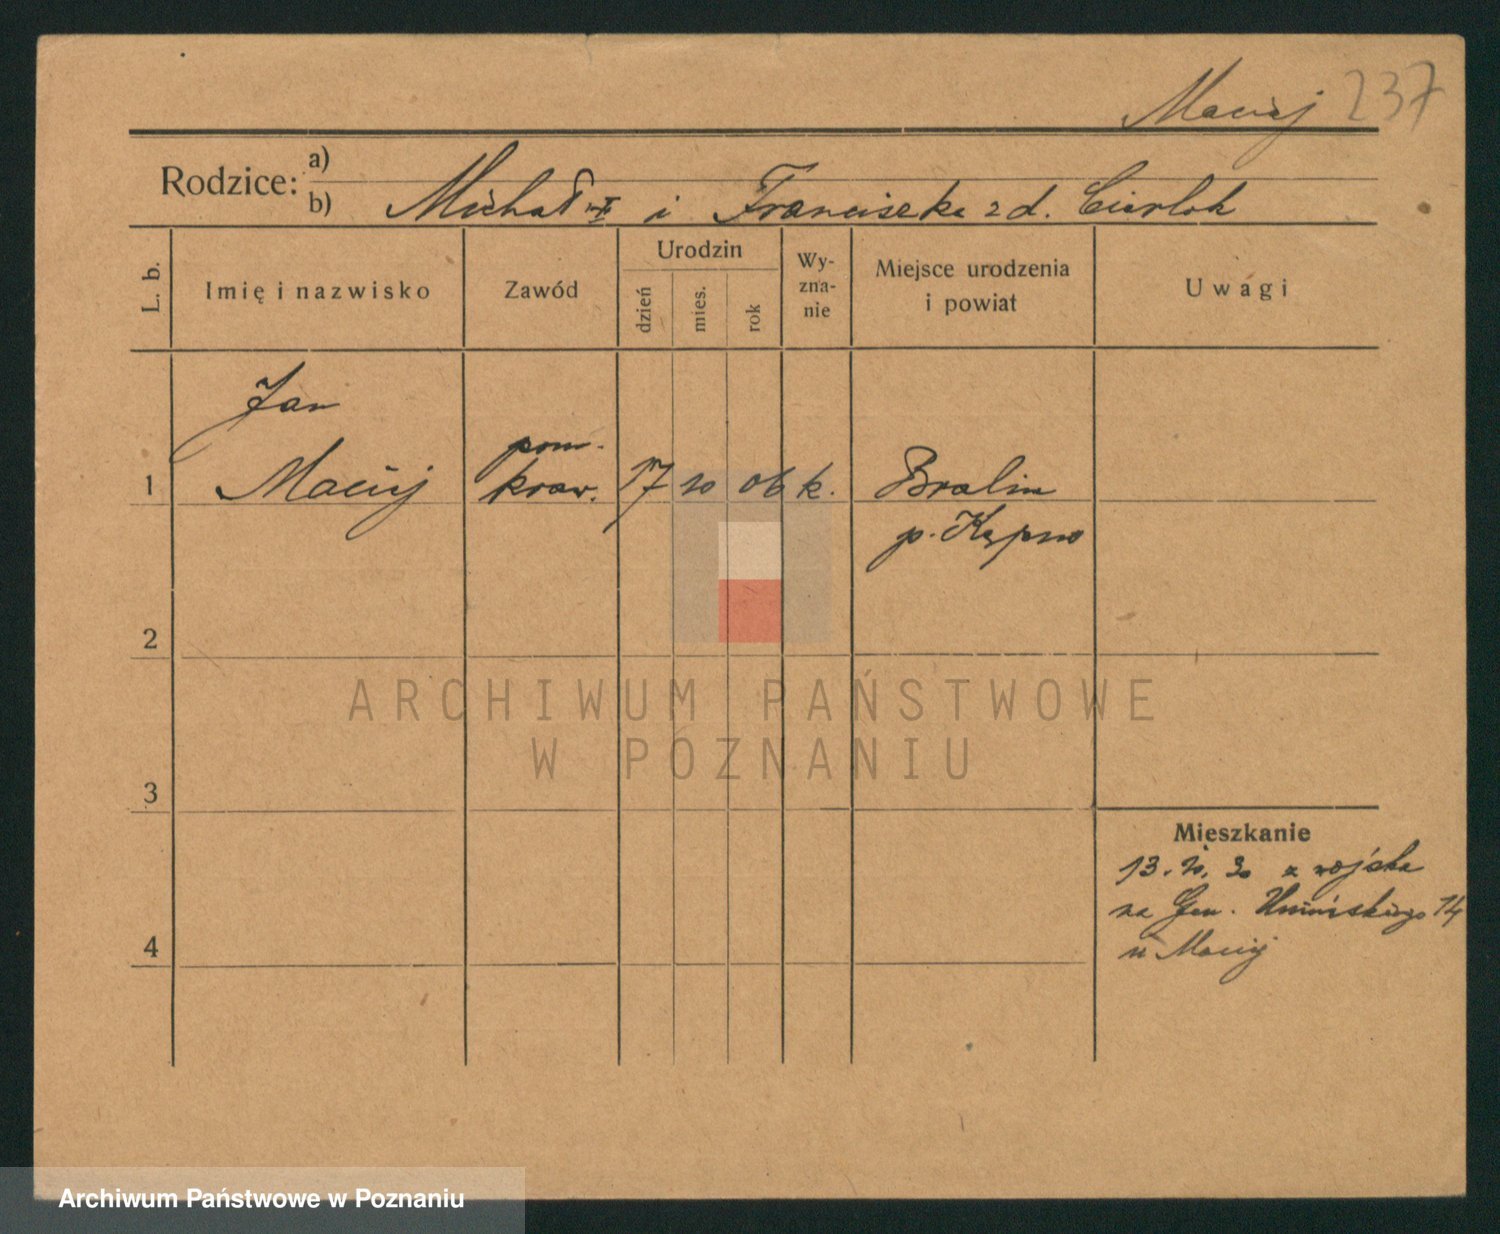 Maciej 237
Rodzice:
a)
b) Michał i Franciszka z d. Cierlok
L. b.
Imię i nazwisko
Zawód
Urodzin
dzień
mies.
rok
Wy-
zna-
nie
Miejsce urodzenia
i powiat
Uwagi
Jan
pom.
1 Maciej kraw. 17 10 06 k. Bralin
p. Kępno
2
3
4
Mieszkanie
13. 10. 30 z wojska
na Gen. Umińskiego 14
u Maciej
ARCHIWUM PAŃSTWOWE
W POZNANIU
Archiwum Państwowe w Poznaniu